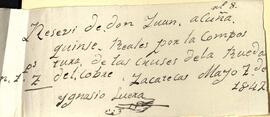 nl 8.
Resevi de don Juan, acuña,
quinse, Reales por la Compos
tura, de las Cruses de la Rueda
del Cobre. Zacatecas Mayo 2. de
1842
Ygnasio Luera